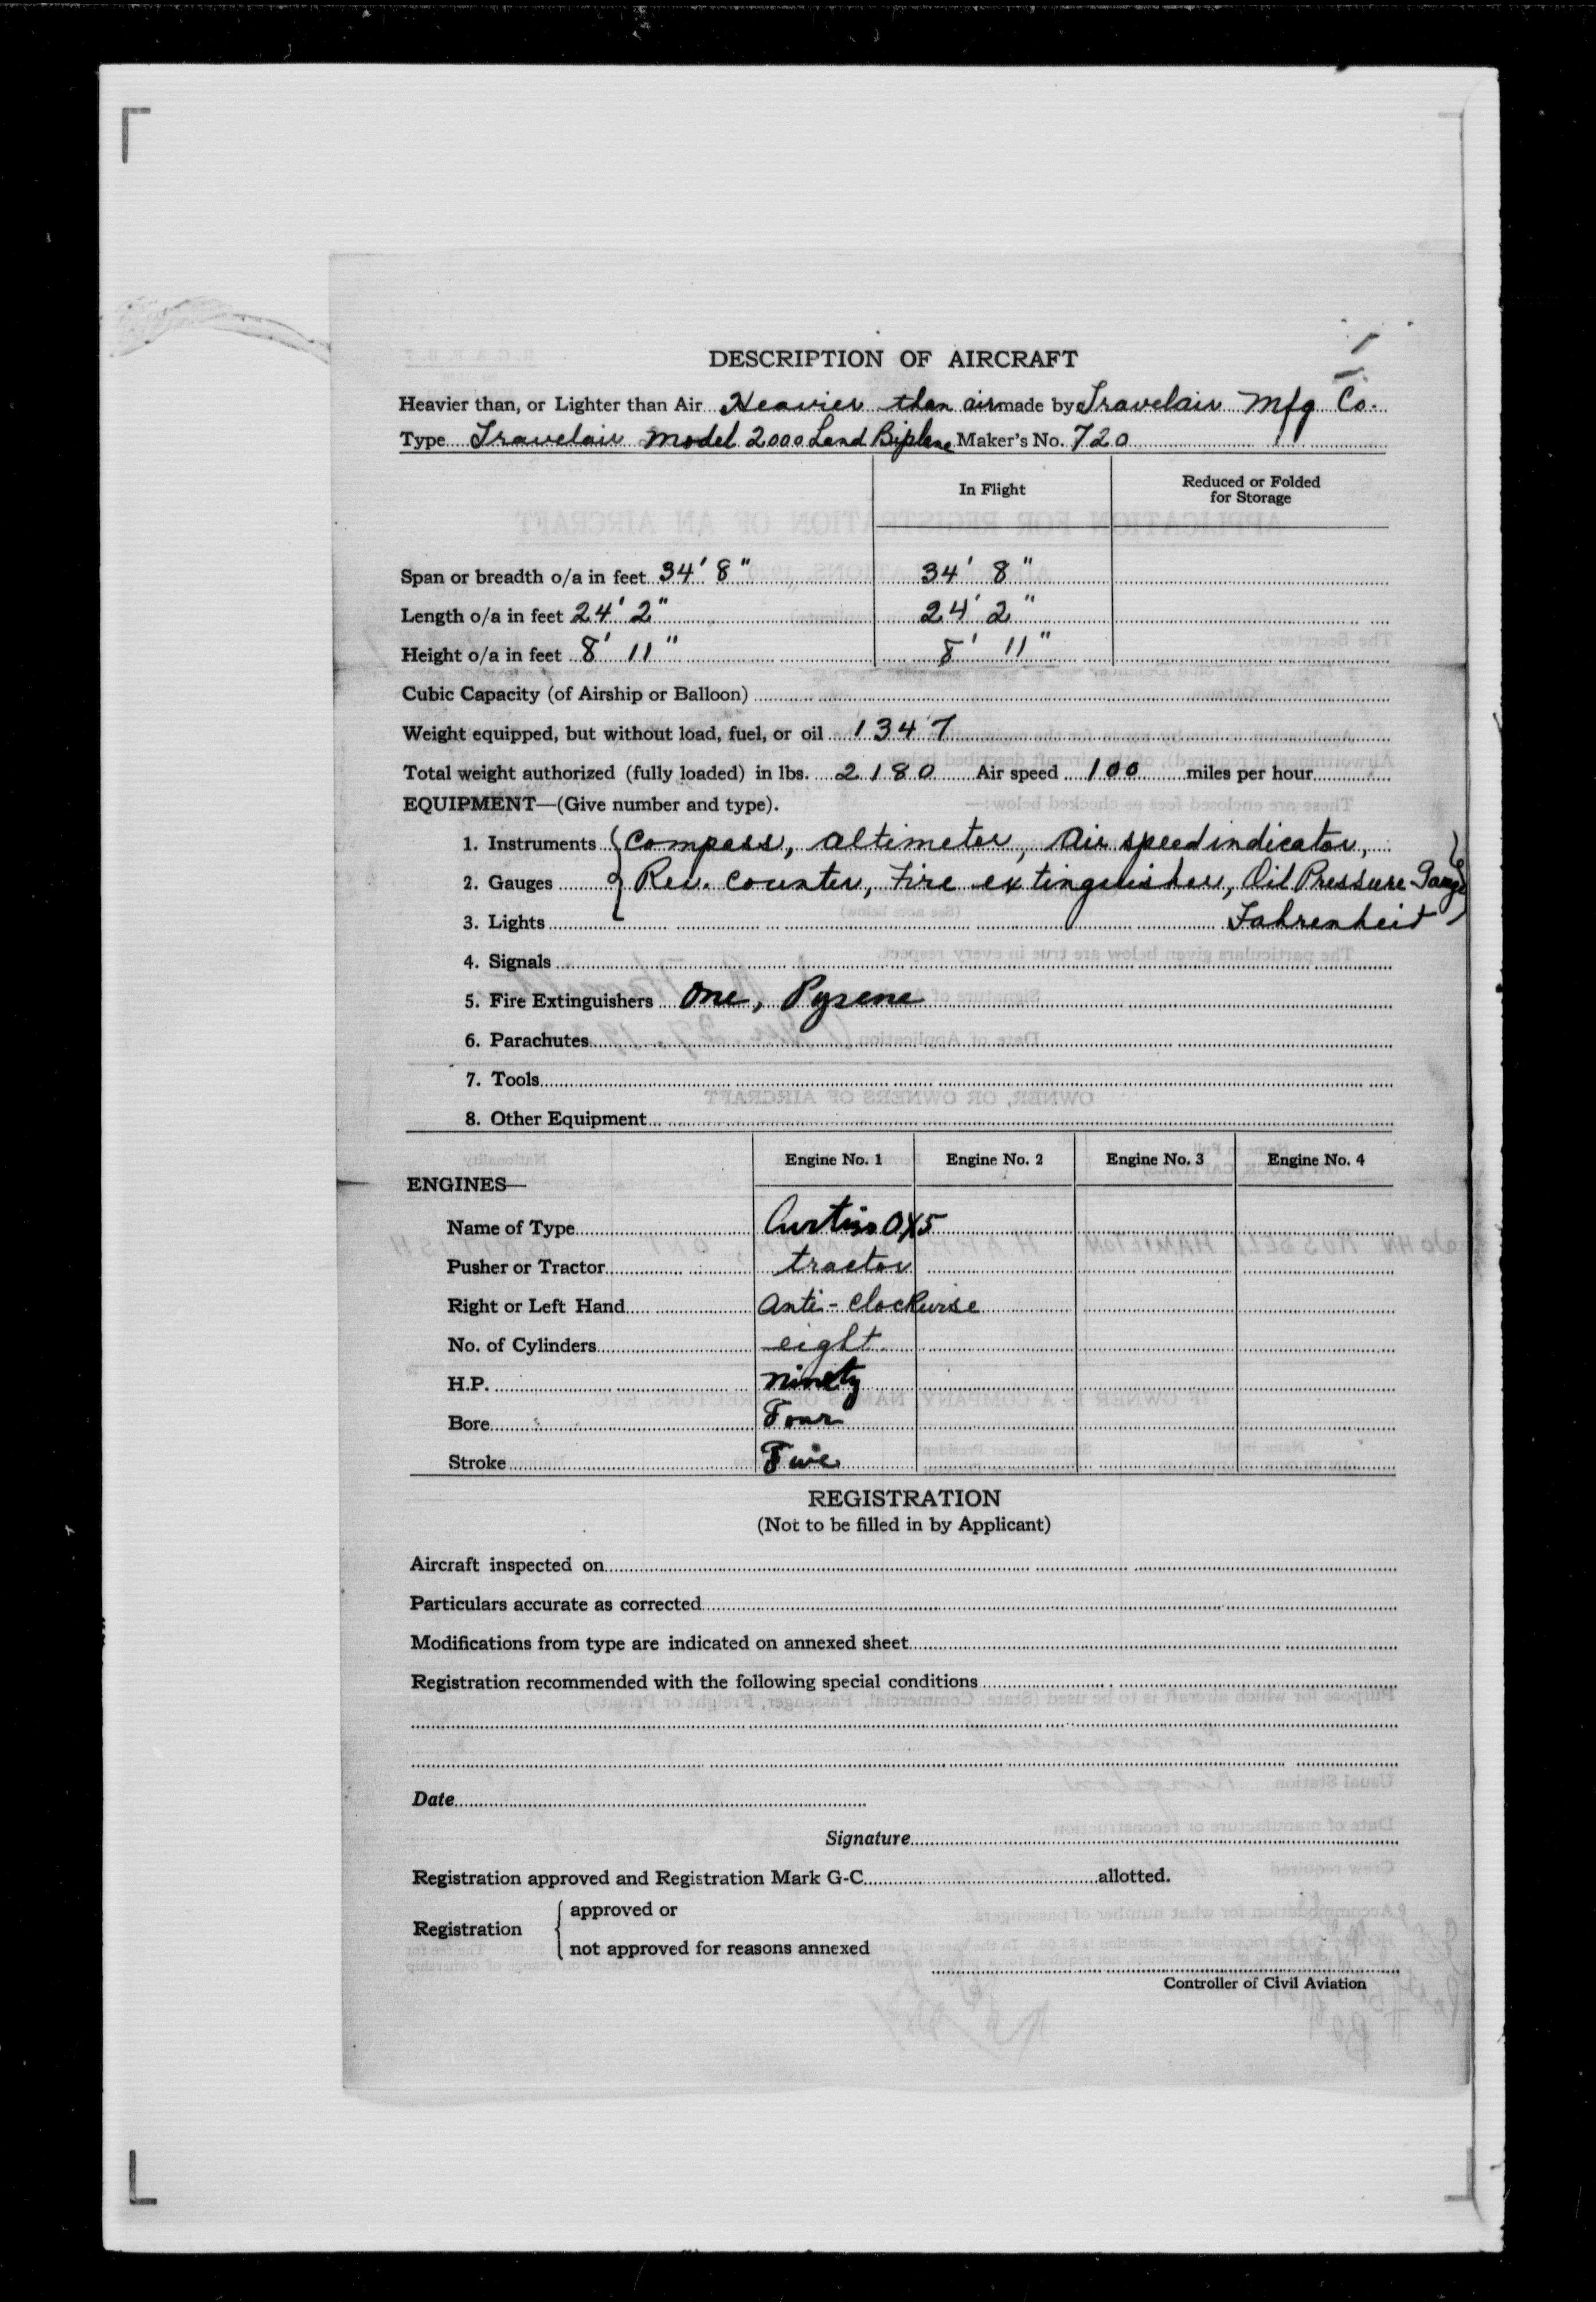 DESCRIPTION OF AIRCRAFT
Heavier than, or Lighter than Air Heavier than air made by Travelair Mfg Co.
Type Travelair Model 2000 Land Biplane Maker's No. 720
In Flight
Reduced or Folded
for Storage
Span or breadth o/a in feet 34' 8" 34' 8"
Length o/a in feet 24' 2" 24' 2"
Height o/a in feet 8' 11" 8' 11"
Cubic Capacity (of Airship or Balloon)
Weight equipped, but without load, fuel, or oil 1347
Total weight authorized (fully loaded) in lbs. 2180 Air speed 100 miles per hour
EQUIPMENT—(Give number and type).
1. Instruments Compass, altimeter, Air speed indicator,
2. Gauges Rev. Counter, Fire extinguisher, Oil Pressure Gauge
3. Lights Fahrenheit
4. Signals
5. Fire Extinguishers One, Pyrene
6. Parachutes
7. Tools
8. Other Equipment
ENGINES— Engine No. 1 Engine No. 2 Engine No. 3 Engine No. 4
Name of Type Curtiss OX5
Pusher or Tractor tractor
Right or Left Hand Anti-Clockwise
No. of Cylinders eight
H.P. ninety
Bore Four
Stroke Five
REGISTRATION
(Not to be filled in by Applicant)
Aircraft inspected on
Particulars accurate as corrected
Modifications from type are indicated on annexed sheet
Registration recommended with the following special conditions
Date
Signature
Registration approved and Registration Mark G-C allotted.
Registration { approved or
not approved for reasons annexed
Controller of Civil Aviation